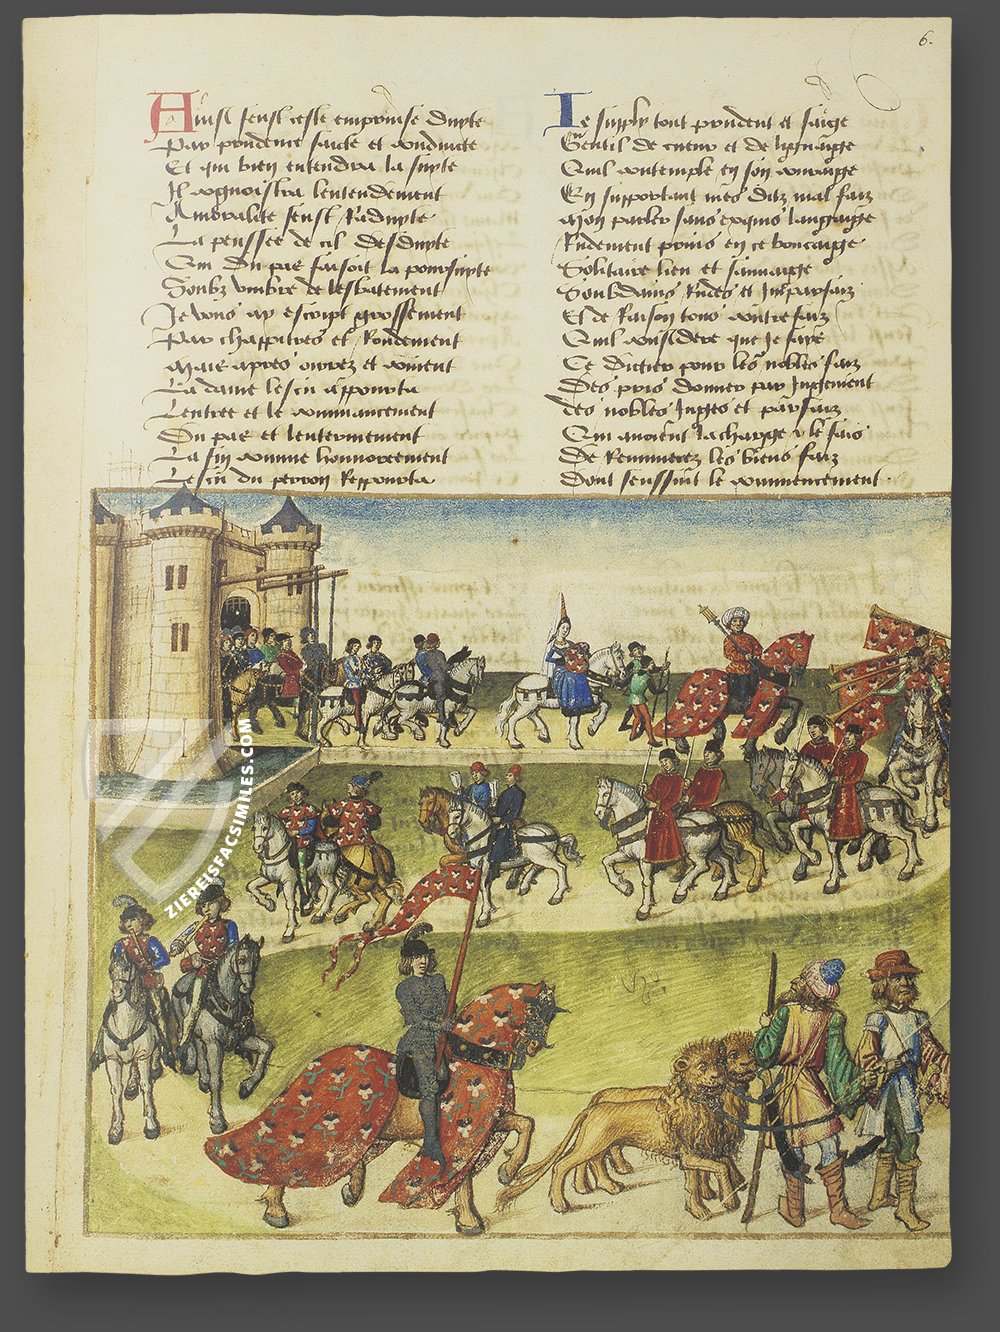 6.
Ainsi sensl ceste emprinse duyte
Par prudence saicte et conduicte
Et qui bien entendra la suyte
Il cognoistra lentendement
A moralite senst Raduyte
La penssee de cil desduyte
Qui du pas faisoit la poursuyte
Soubz umbre de lesbatement
Je vous ay escript grossement
Par chappitres et Rondement
Mais apres ouvrez et
La dame lescu apporta
Lentree et le commancement
Du pas et lentermement
La fin comme honnorement
Lescu du perron Rapporta
Je supply tout prudent et saige
Gentil de cueur et de lignaige
Quil contemple en son couraige
En supportant mes ditz mal faiz
Mon parler sans exquis langaige
Rudement prins en ce boucaige
Solitaire lieu et sauvaige
Soubdains Rudes et Imparfaiz
Et de Raison tous contrefaiz
Quil considere que Je fais
Ce dictier pour les nobles faiz
Des pris donner par Jugement
Les nobles Juges et parfaiz
Qui avoient la charge le fais
De Remunerez les biens faiz
Dont sensuit le commencement.
ZIEREISFACSIMILES.COM